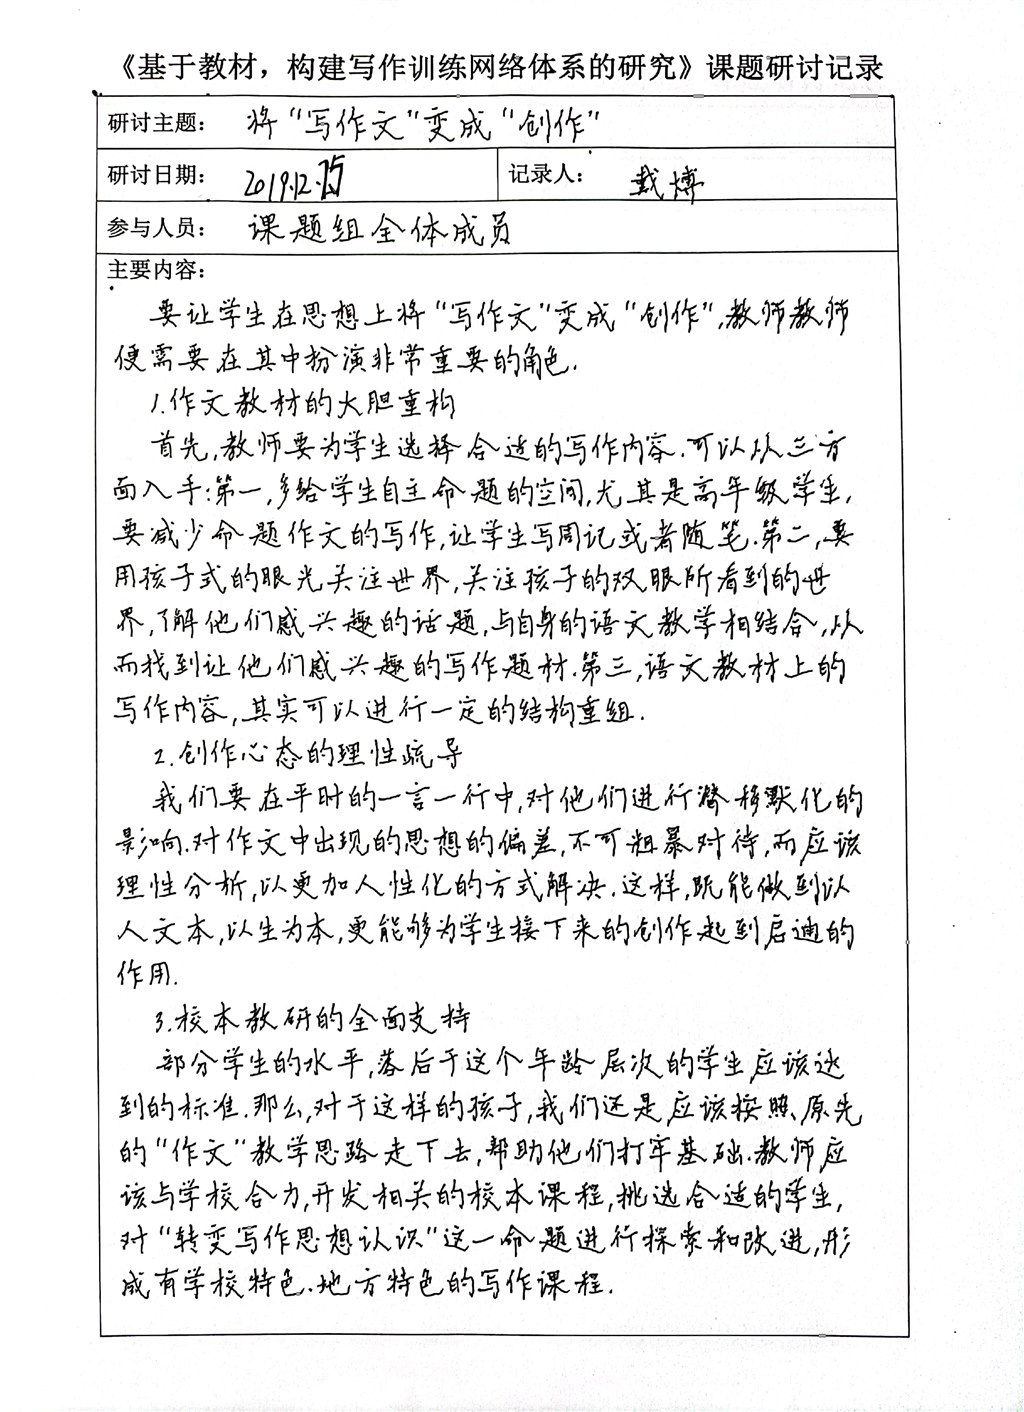 《基于教材，构建写作训练网络体系的研究》课题研讨记录
研讨主题： 将“写作文”变成“创作”
研讨日期： 2019.12. 记录人： 戴博
参与人员： 课题组全体成员
主要内容：
要让学生在思想上将“写作文”变成“创作”,教师教师
便需要在其中扮演非常重要的角色.
1.作文教材的大胆重构
首先,教师要为学生选择合适的写作内容.可以从三方
面入手:第一,多给学生自主命题的空间,尤其是高年级学生,
要减少命题作文的写作,让学生写周记或者随笔.第二,要
用孩子式的眼光关注世界,关注孩子的双眼所看到的世
界,了解他们感兴趣的话题,与自身的语文教学相结合,从
而找到让他们感兴趣的写作题材.第三,语文教材上的
写作内容,其实可以进行一定的结构重组.
2.创作心态的理性疏导
我们要在平时的一言一行中,对他们进行潜移默化的
影响.对作文中出现的思想的偏差,不可粗暴对待,而应该
理性分析,以更加人性化的方式解决.这样,既能做到以
人文本,以生为本,更能够为学生接下来的创作起到启迪的
作用.
3.校本教研的全面支持
部分学生的水平,落后于这个年龄层次的学生应该达
到的标准.那么,对于这样的孩子,我们还是应该按照原先
的“作文”教学思路走下去,帮助他们打牢基础.教师应
该与学校合力,开发相关的校本课程,挑选合适的学生,
对“转变写作思想认识”这一命题进行探索和改进,形
成有学校特色.地方特色的写作课程.